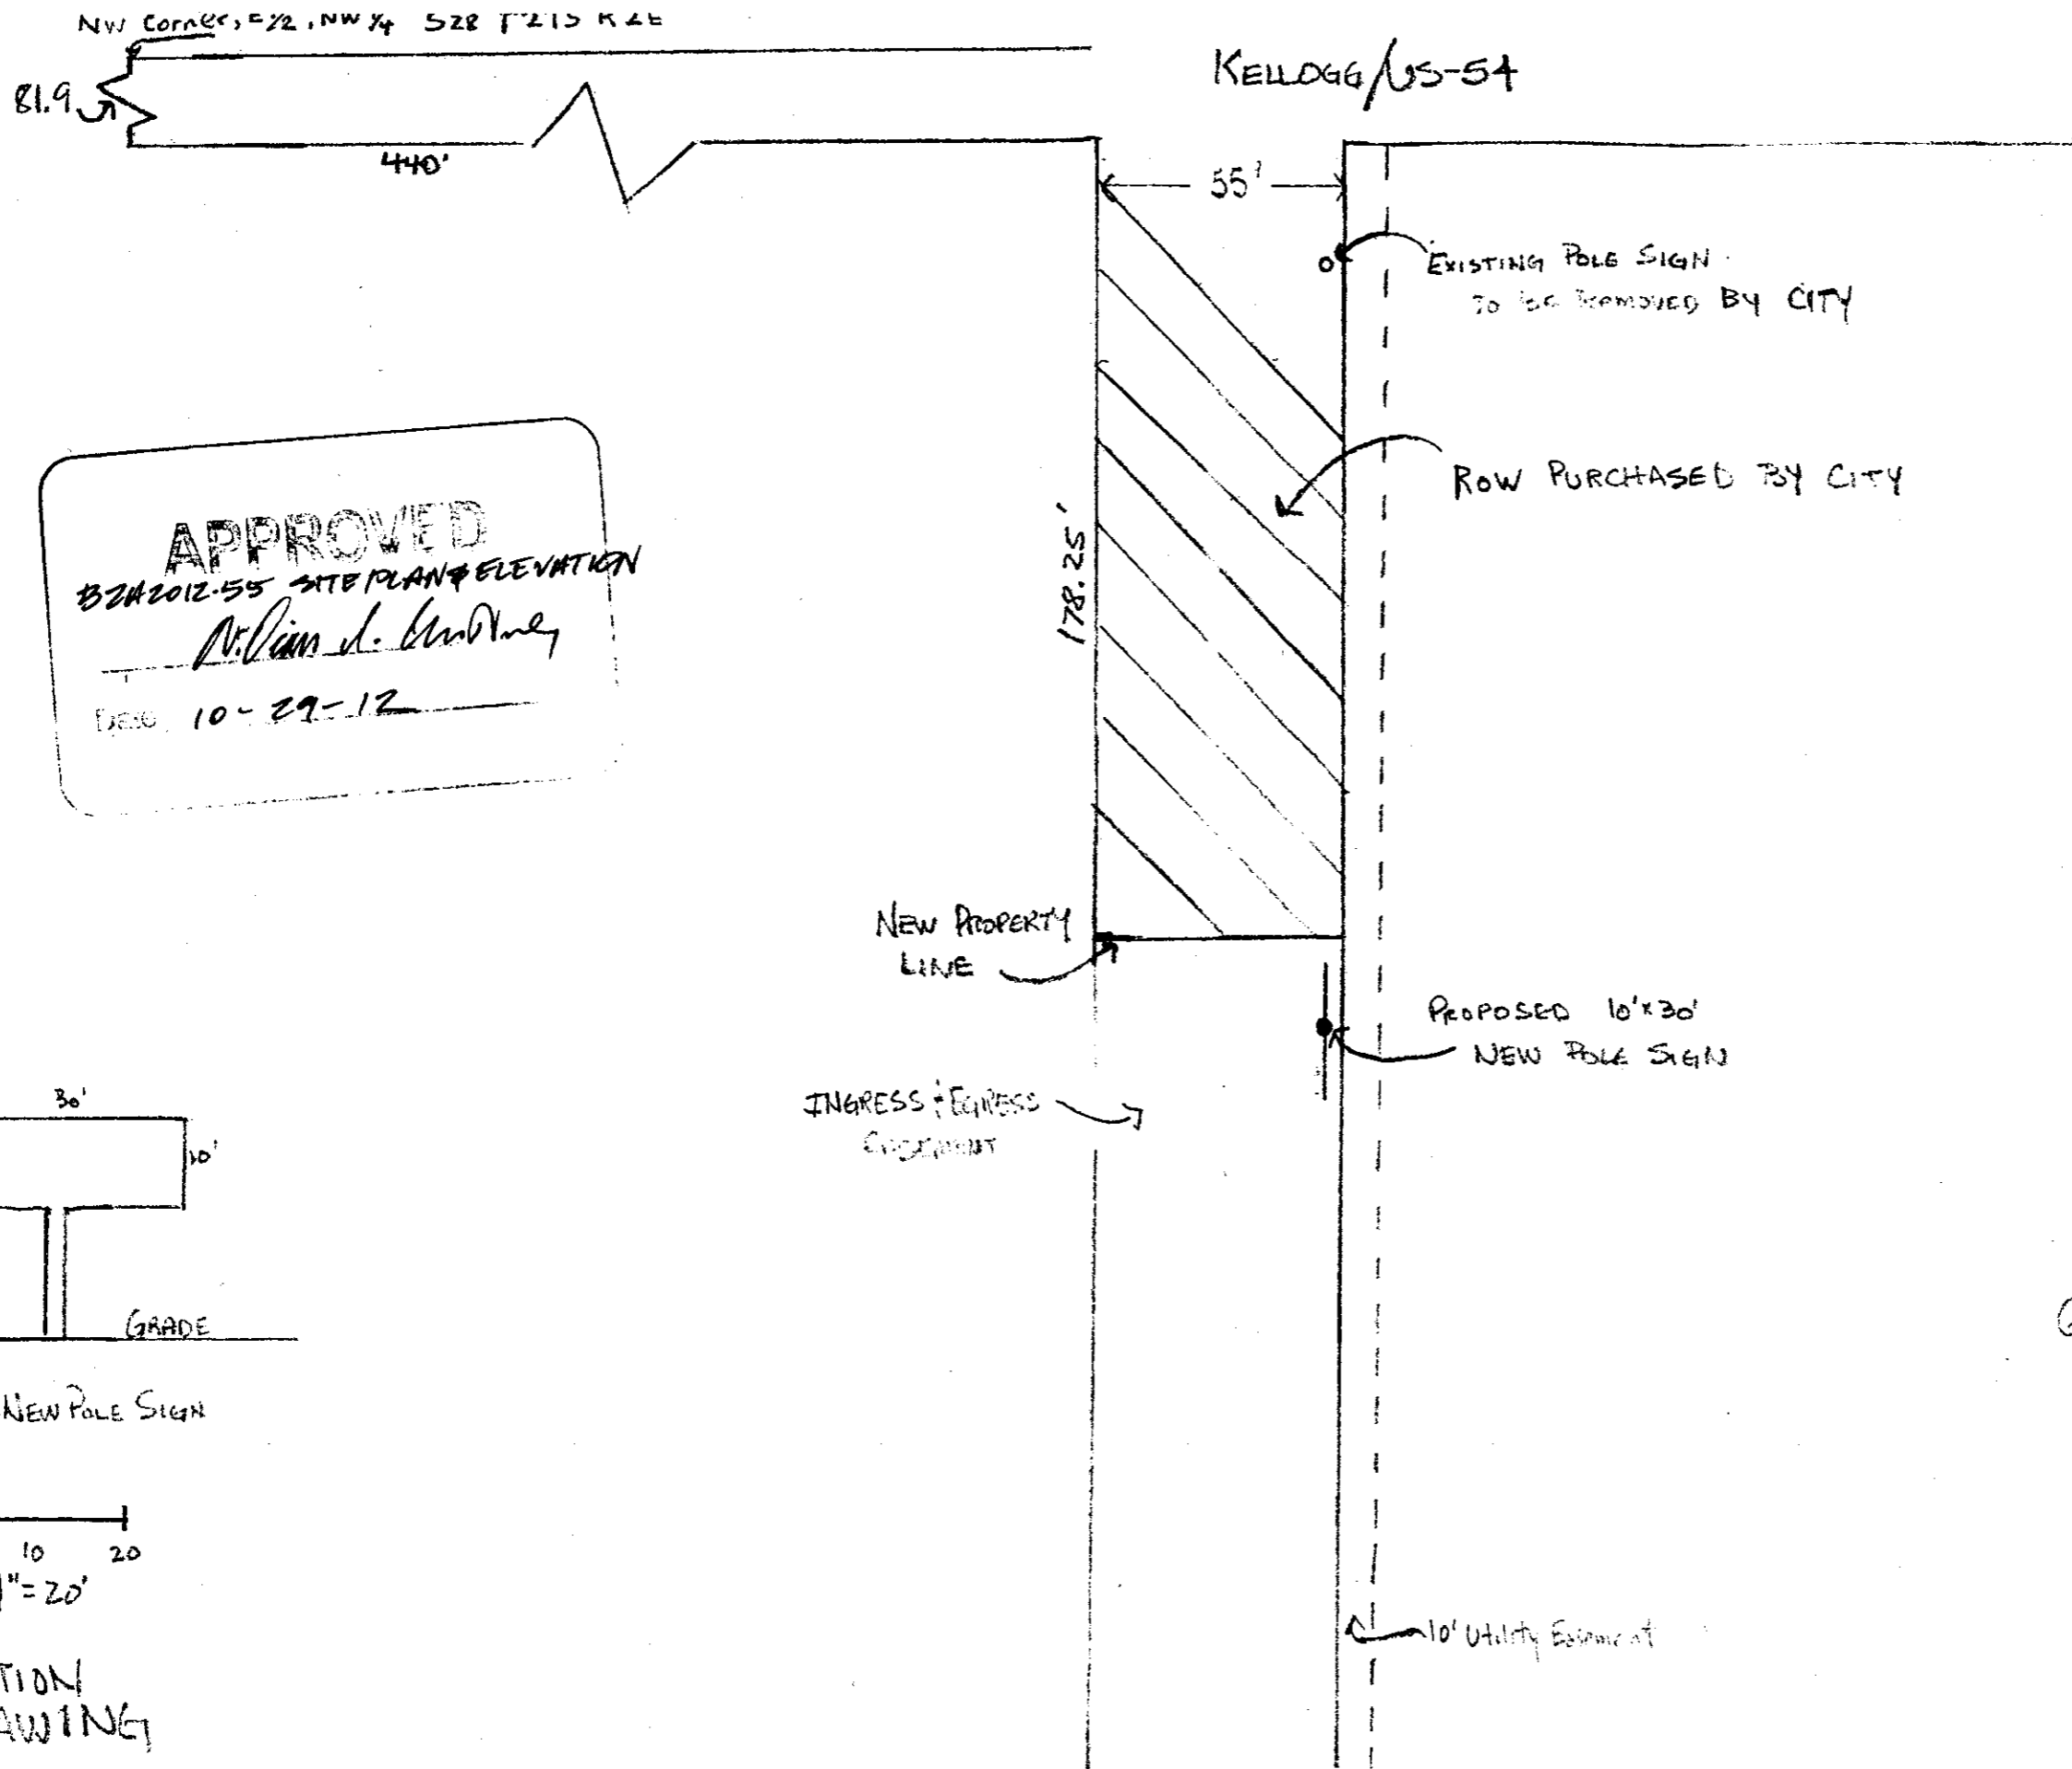 NW Corner, E½, NW ¼ S28 T27S R2E
KELLOGG/US-54
81.9
440'
55'
EXISTING POLE SIGN
TO BE REMOVED BY CITY
ROW PURCHASED BY CITY
178.25'
APPROVED
BZA2012-55 SITE PLAN & ELEVATION
10-29-12
NEW PROPERTY
LINE
PROPOSED 10'x30'
NEW POLE SIGN
INGRESS + EGRESS
EASEMENT
30'
10'
GRADE
NEW POLE SIGN
10 20
1"=20'
TION
AWING
10' Utility Easement